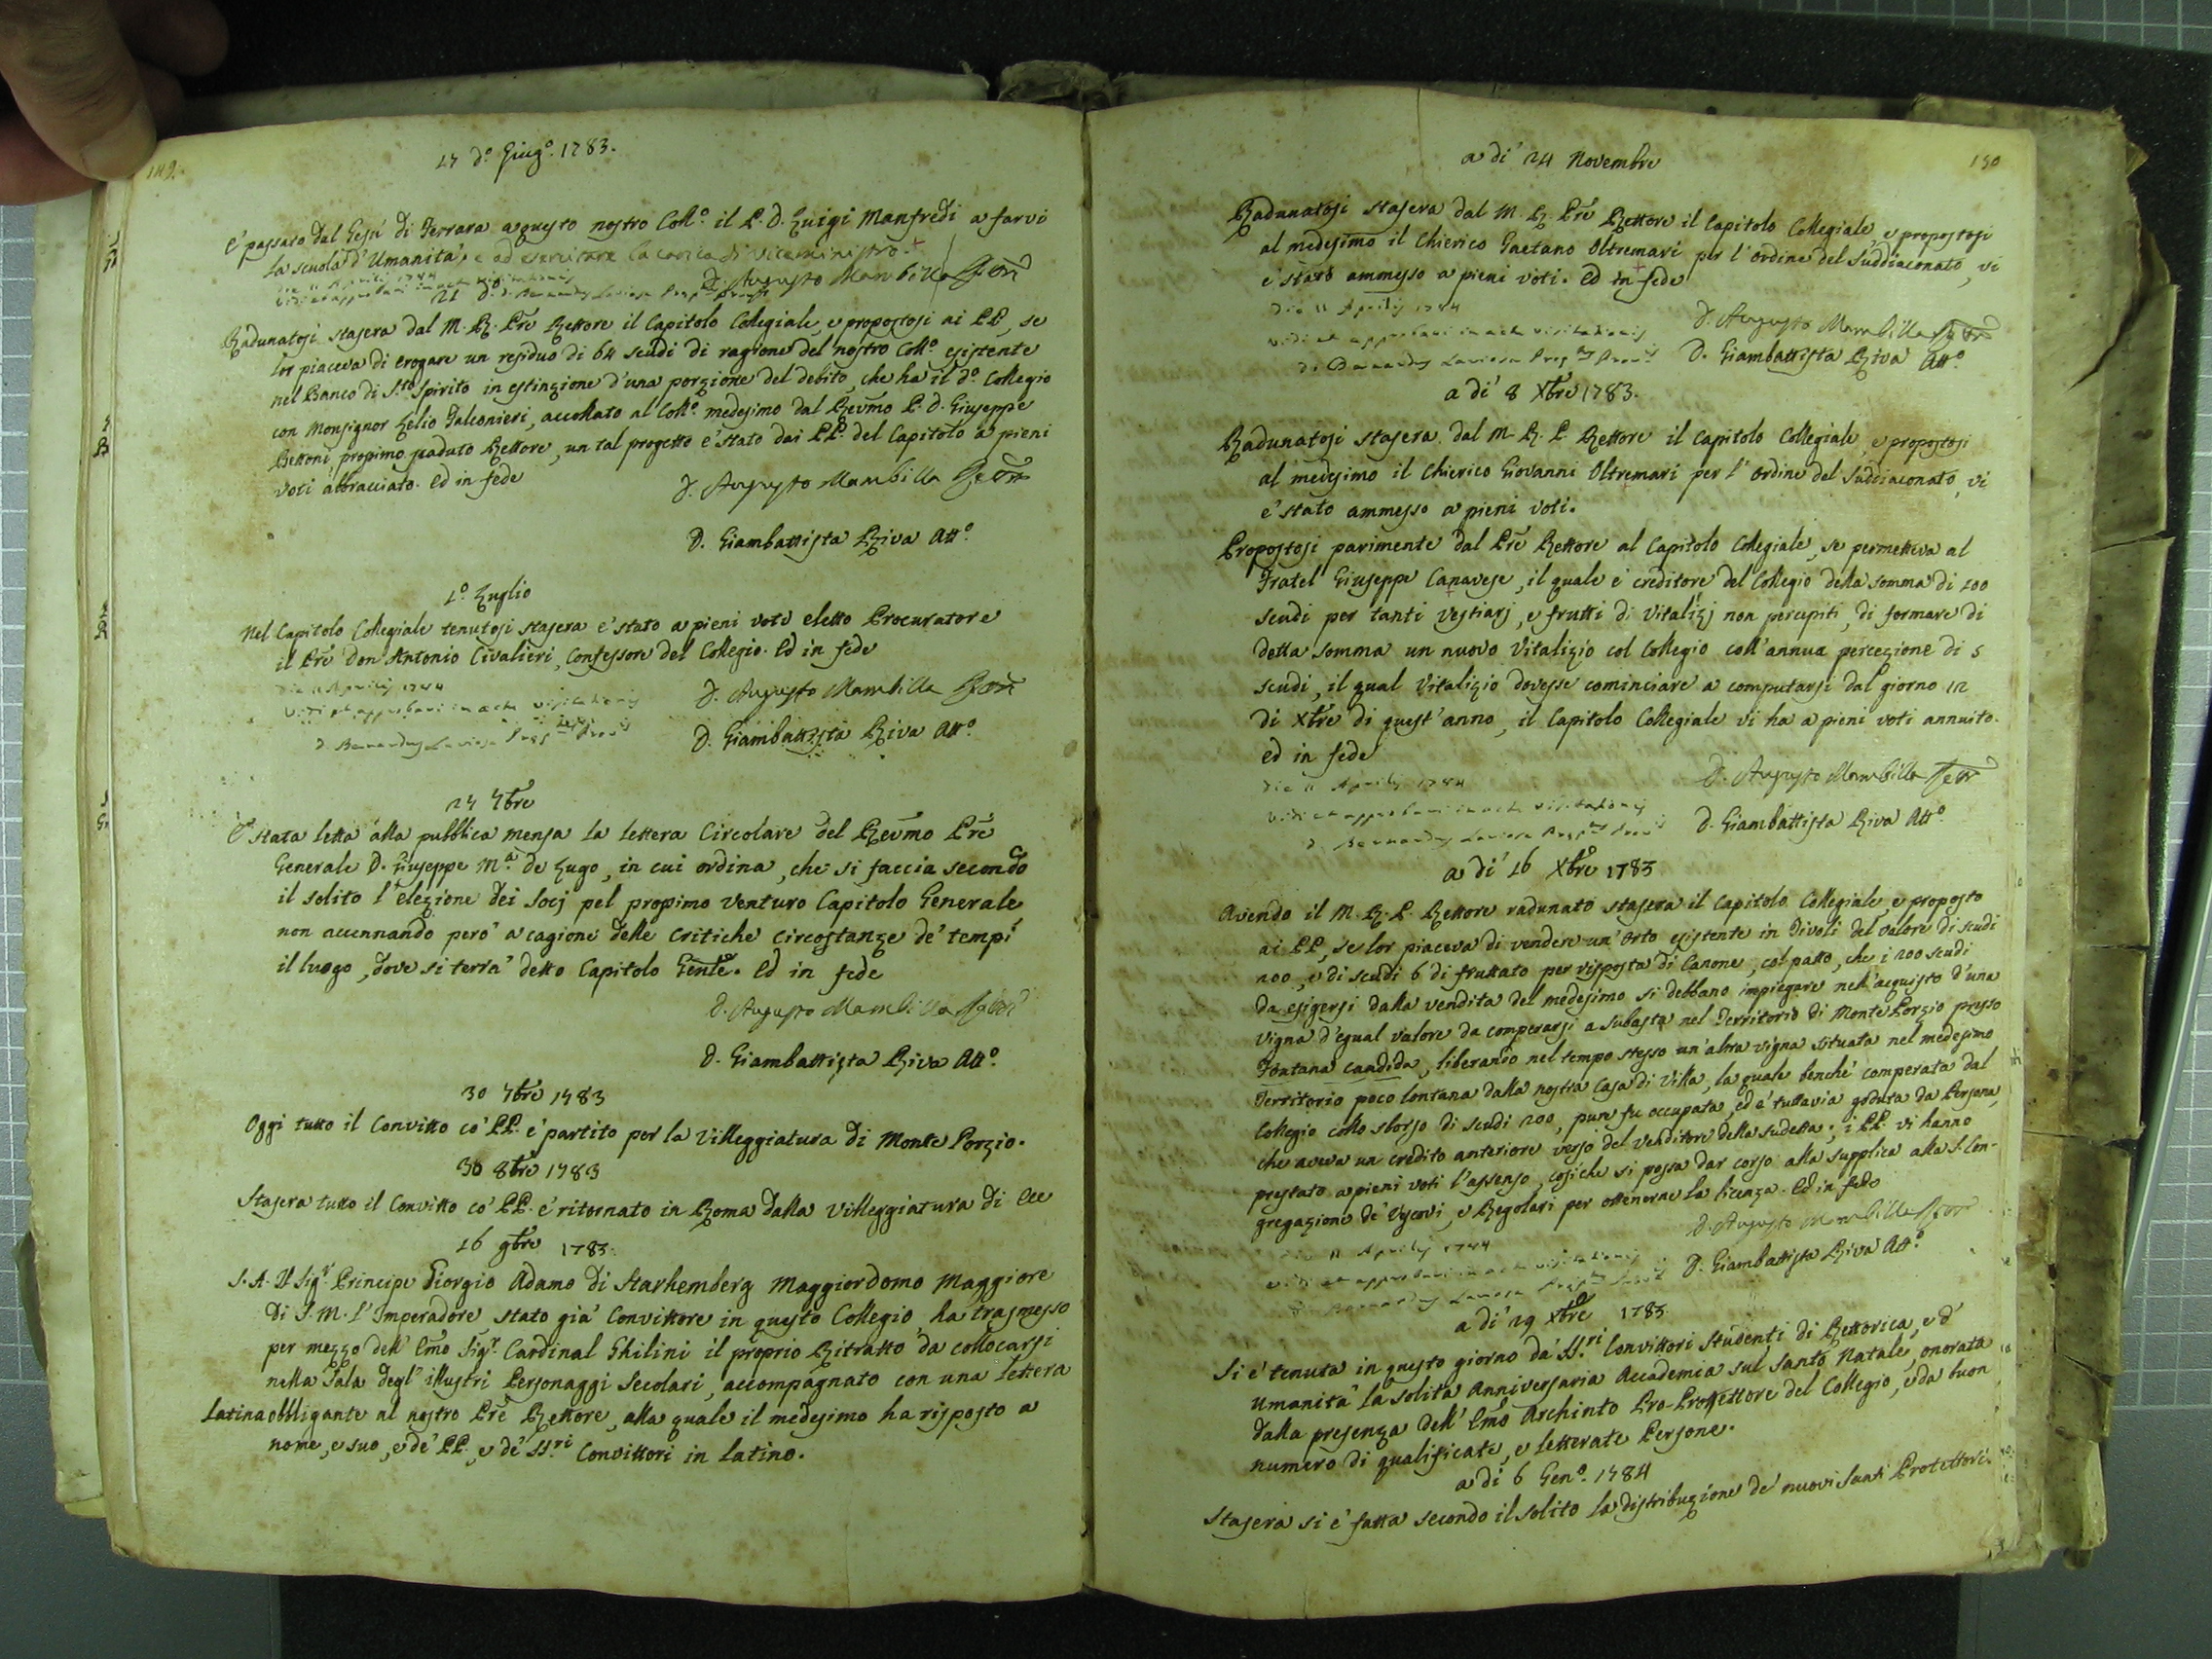 149.
17 d.º Giug.º 1783.
E' passato dal Gesù di Ferrara a questo nostro Coll.º il P. D. Luigi Manfredi a farvi
la scuola d'Umanità, e ad esercitare la carica di Viceministro.
D. Augusto Mambilla Rett.re
Die 11 Aprilis 1784
Vidi et approbavi in actu visitationis
D. Bernardus Laviosa Prep.tus Prov.lis
21 d.º
Radunatosi stasera dal M. R. Prē Rettore il Capitolo Collegiale, e propostosi ai PP., se
lor piaceva di erogare un residuo di 64 scudi di ragione del nostro Coll.º esistente
nel Banco di S.to Spirito in estinzione d'una porzione del debito, che ha il d.º Collegio
con Monsignor Lelio Falconieri, accollato al Coll.º medesimo dal Revmo P. D. Giuseppe
Bettoni, prossimo passato Rettore, un tal progetto è stato dai PP. del Capitolo a pieni
voti abbracciato. Ed in fede
D. Augusto Mambilla Rett.re
D. Giambattista Riva Att.º
1.º Luglio
Nel Capitolo Collegiale tenutosi stasera è stato a pieni voti eletto Procuratore
il Prē Don Antonio Civalieri, Confessore del Collegio. Ed in fede
Die 11 Aprilis 1784
Vidi et approbavi in actu visitationis
D. Bernardus Laviosa Prep.tus Prov.lis
D. Augusto Mambilla Rett.re
D. Giambattista Riva Att.º
24 7bre
E' stata letta alla pubblica mensa la lettera Circolare del Revmo Prē
Generale D. Giuseppe M.a de Lugo, in cui ordina, che si faccia secondo
il solito l'elezione dei Socj pel prossimo venturo Capitolo Generale
non accennando però a cagione delle critiche circostanze de' tempi
il luogo, dove si terrà detto Capitolo Genle. Ed in fede
D. Augusto Mambilla Rett.re
D. Giambattista Riva Att.º
30 7bre 1783
Oggi tutto il Convitto co' PP. è partito per la Villeggiatura di Monte Porzio.
30 8bre 1783
Stasera tutto il Convitto co' PP. è ritornato in Roma dalla Villeggiatura di
16 9bre 1783.
S. A. Il Sig.r Principe Giorgio Adamo di Starhemberg Maggiordomo Maggiore
di S. M. l'Imperadore stato già Convittore in questo Collegio, ha trasmesso
per mezzo dell' Emo Sig.r Cardinal Ghilini il proprio Ritratto da collocarsi
nella Sala degl' illustri Personaggi Secolari, accompagnato con una lettera
Latina obbligante al nostro Prē Rettore, alla quale il medesimo ha risposto a
nome, e suo, e de' PP., e de' SS.ri Convittori in latino.
150
a di 24 Novembre
Radunatosi stasera dal M. R. Prē Rettore il Capitolo Collegiale, e propostosi
al medesimo il Chierico Gaetano Oltremari per l'ordine del Suddiaconato, vi
è stato ammesso a pieni voti. Ed in fede
Die 11 Aprilis 1784
Vidi et approbavi in actu visitationis
D. Bernardus Laviosa Prep.tus Prov.lis
D. Augusto Mambilla Rett.re
D. Giambattista Riva Att.º
a di 8 Xbre 1783.
Radunatosi stasera dal M. R. P. Rettore il Capitolo Collegiale, e propostosi
al medesimo il Chierico Giovanni Oltremari per l'ordine del Suddiaconato, vi
è stato ammesso a pieni voti.
Propostosi parimente dal Prē Rettore al Capitolo Collegiale, se permetteva al
Fratel Giuseppe Canavese, il quale è creditore del Collegio della somma di 100
scudi per tanti vestiarj, e frutti di Vitalizj non percepiti, di formare di
detta somma un nuovo Vitalizio col Collegio coll' annua percezione di 5
scudi, il qual Vitalizio dovesse cominciare a computarsi dal giorno 12
di Xbre di quest' anno, il Capitolo Collegiale vi ha a pieni voti annuito.
ed in fede
Die 11 Aprilis 1784
Vidi et approbavi in actu visitationis
D. Bernardus Laviosa Prep.tus Prov.lis
D. Augusto Mambilla Rett.re
D. Giambattista Riva Att.º
a di 16 Xbre 1783
Avendo il M. R. P. Rettore radunato stasera il Capitolo Collegiale, e proposto
ai PP., se lor piaceva di vendere un' Orto esistente in Tivoli del valore di scudi
200, e di scudi 6 di fruttato per risposta di Canone, col patto, che i 200 scudi
da esigersi dalla vendita del medesimo si debbano impiegare nell' acquisto d'una
vigna d'egual valore da comperarsi a subasta nel Territorio di Monte Porzio presso
Fontana candida, liberando nel tempo stesso un' altra vigna situata nel medesimo
Territorio poco lontana dalla nostra Casa di Villa, la quale benchè comperata dal
Collegio collo sborso di scudi 200, pure fu occupata, ed è tuttavia goduta da Persona,
che aveva un credito anteriore verso del Venditore della sudetta; i PP. vi hanno
prestato a pieni voti l'assenso, cosiche si possa dar corso alla supplica alla S. Con-
gregazione de' Vescovi, e Regolari per ottenerne la licenza. Ed in fede
Die 11 Aprilis 1784
Vidi et approbavi in actu visitationis
D. Bernardus Laviosa Prep.tus Prov.lis
D. Augusto Mambilla Rett.re
D. Giambattista Riva Att.º
a di 29 Xbre 1783.
Si è tenuta in questo giorno da' SS.ri Convittori Studenti di Rettorica, e d'
Umanità la solita anniversaria Accademia sul Santo Natale, onorata
dalla presenza dell' Emo Archinto Pro-Protettore del Collegio, e da buon
numero di qualificate, e letterate Persone.
a di 6 Gen.º 1784
Stasera si è fatta secondo il solito la distribuzione de' nuovi Santi Protettori.